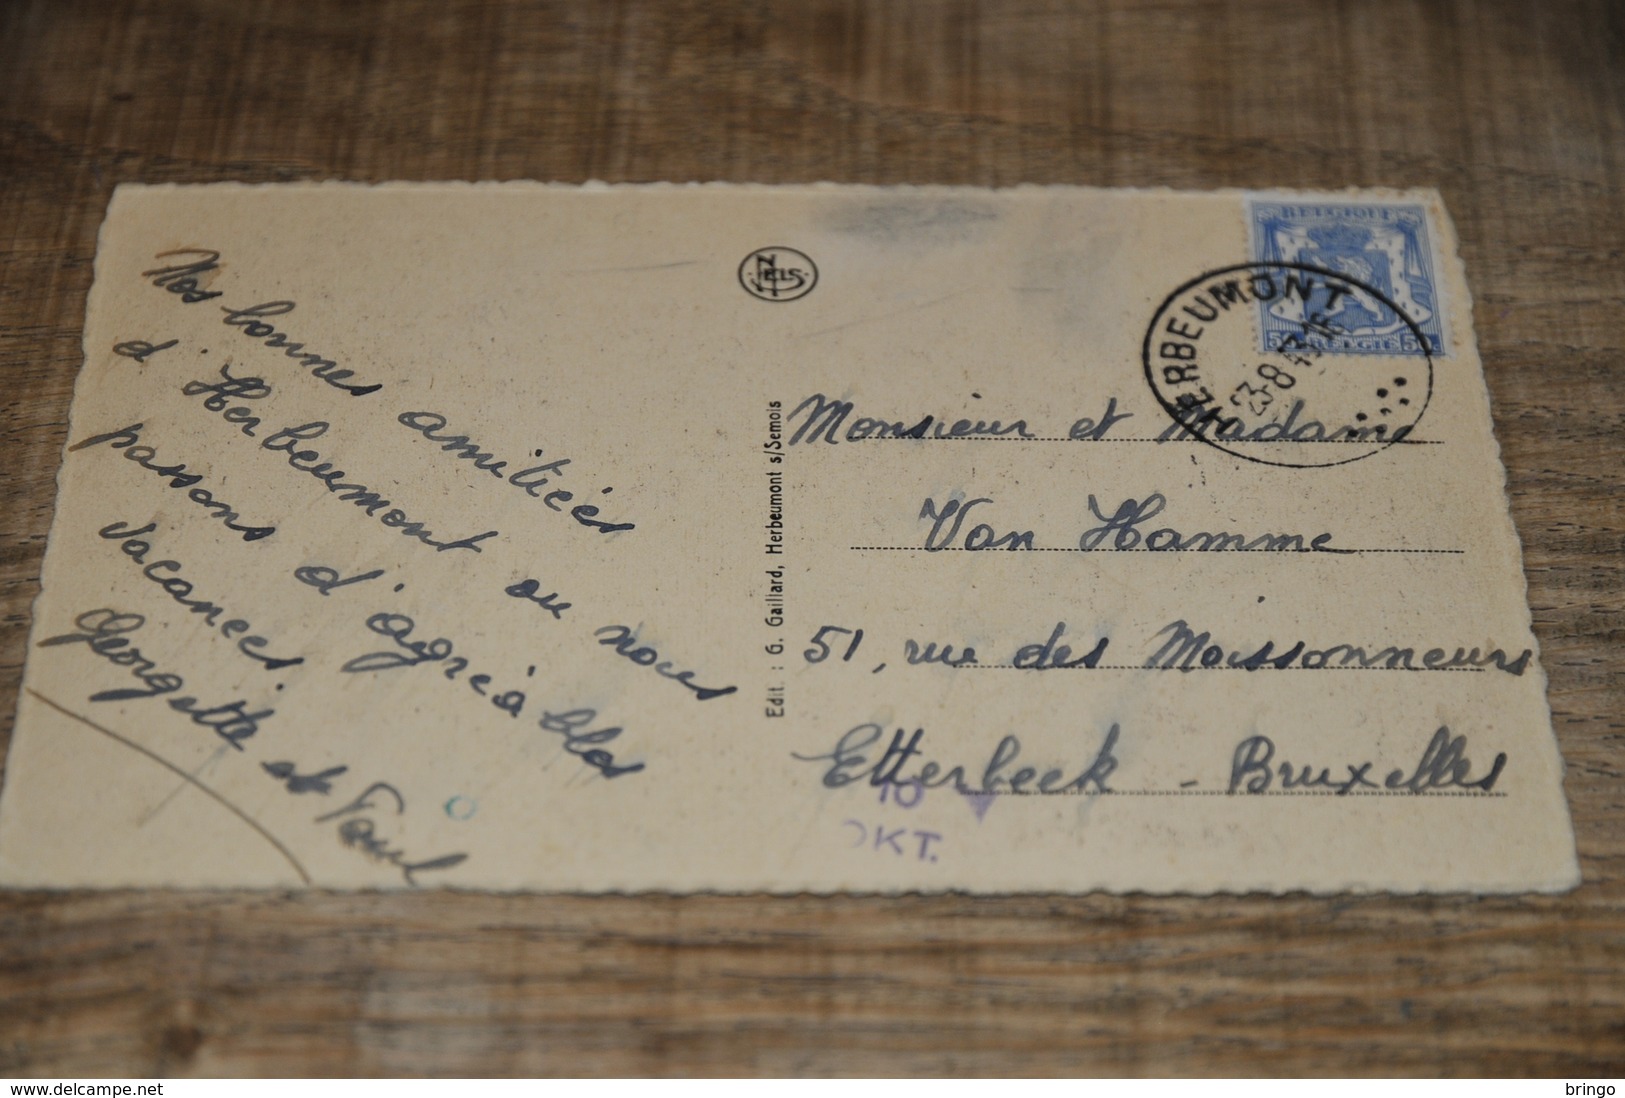 Nos bonnes amitiés
d'Herbeumont ou nous
passons d'agréables
vacances.
Georgette et Paul
NELS
Edit. : G. Gaillard, Herbeumont s/Semois
BELGIQUE
BELGIE
HERBEUMONT
Monsieur et Madame
Van Hamme
51, rue des Moissonneurs
Etterbeek - Bruxelles
10
OKT.
https://www.delcampe.net
bringo